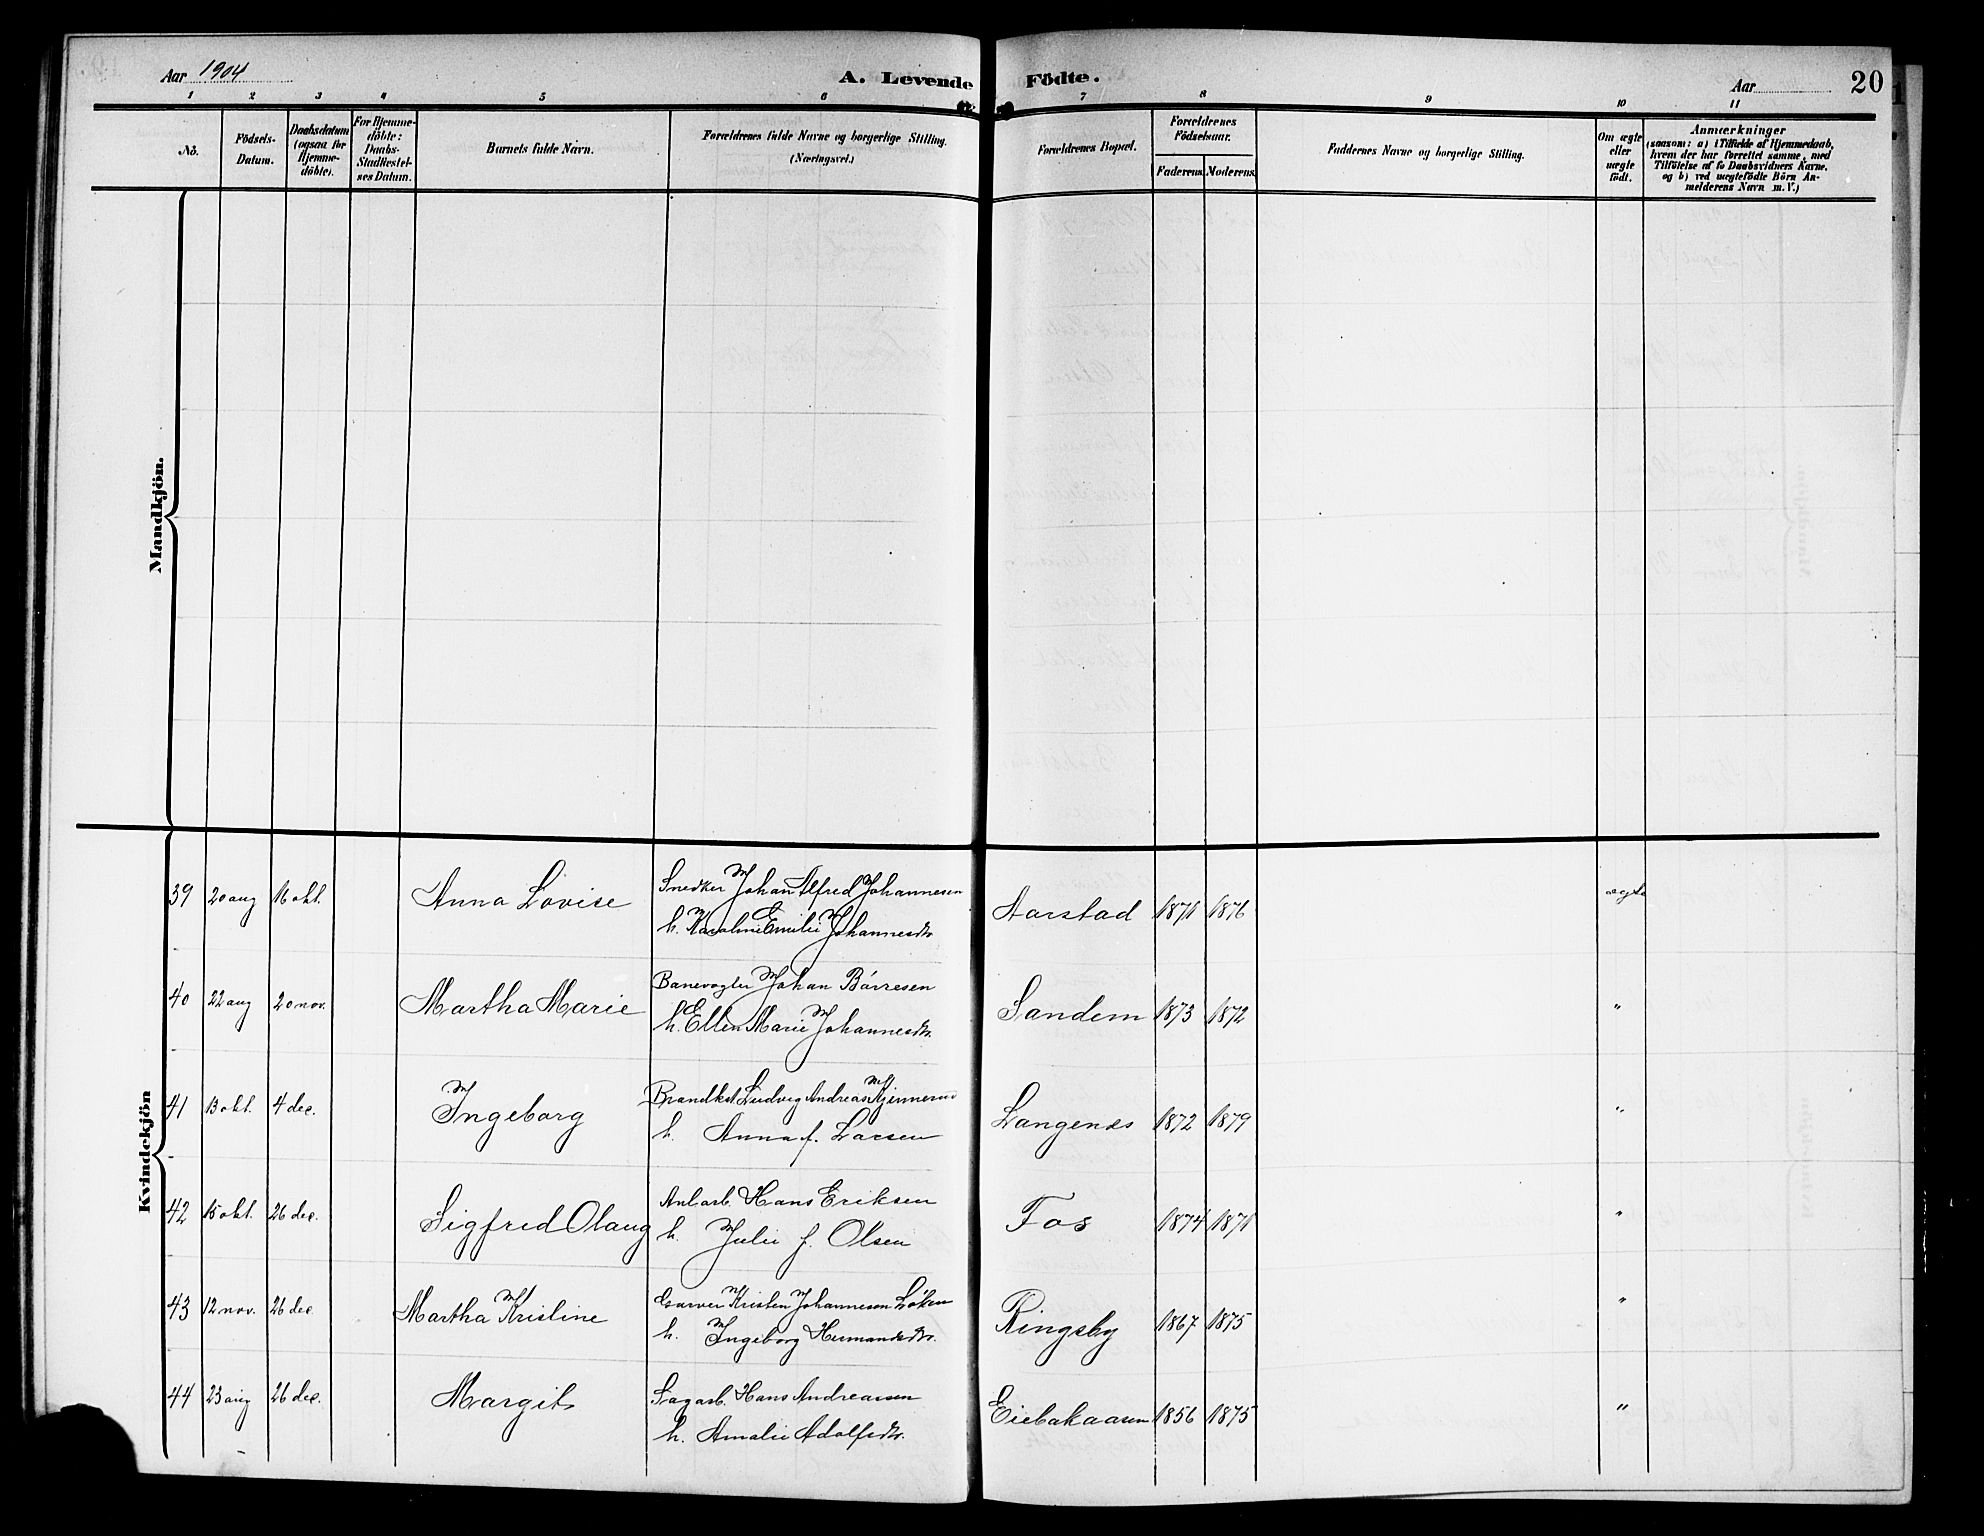 Aar 1904
A. Levende Födte.
Aar
20
1 2 3 4 5 6 7 8 9 10 11
No.
Födsels-Datum.
Daabsdatum (ogsaa for Hjemme-döbte).
For Hjemme-döbte: Daabs-Stadfæstel-ses Datum.
Barnets fulde Navn.
Forældrenes fulde Navne og borgerlige Stilling. (Næringsvei.)
Forældrenes Bopæl.
Forældrenes Födselsaar.
Faderens. Moderens.
Faddernes Navne og borgerlige Stilling.
Om ægte eller uægte födt.
Anmærkninger
(saasom: a) i Tilfælde af Hjemmedaab, hvem der har forrettet samme, med Tilföielse af to Daabsvidners Navne, og b) ved uægtefödte Börn An-melderens Navn m. V.)
Mandkjön.
Kvindekjön
39 20 aug 16 okt. Anna Lovise Snedker Johan Alfred Johannesen Aarstad 1871 1876 ægte
h. Karoline Emilie Johannesdtr.
40 22 aug 20 nov. Martha Marie Banevogter Johan Börresen Sandem 1873 1872 "
h. Ellen Marie Johannesdtr.
41 13 okt. 4 dec. Ingeborg Ludvig Andreas Langenes 1872 1879 "
h. Anna f. Larsen
42 15 okt. 26 dec. Sigfred Olaug Anlarb. Hans Eriksen Fos 1874 1871 "
h. Julie f. Olsen
43 12 nov. 26 dec Martha Kristine Garver Kristen Johannesen Löken Ringsby 1867 1875 "
h. Ingeborg Hermansdtr.
44 23 aug 26 dec. Margit Sagarb. Hans Andreasen Eiebakaasen 1856 1875 "
h. Amalie Adolfsdtr.